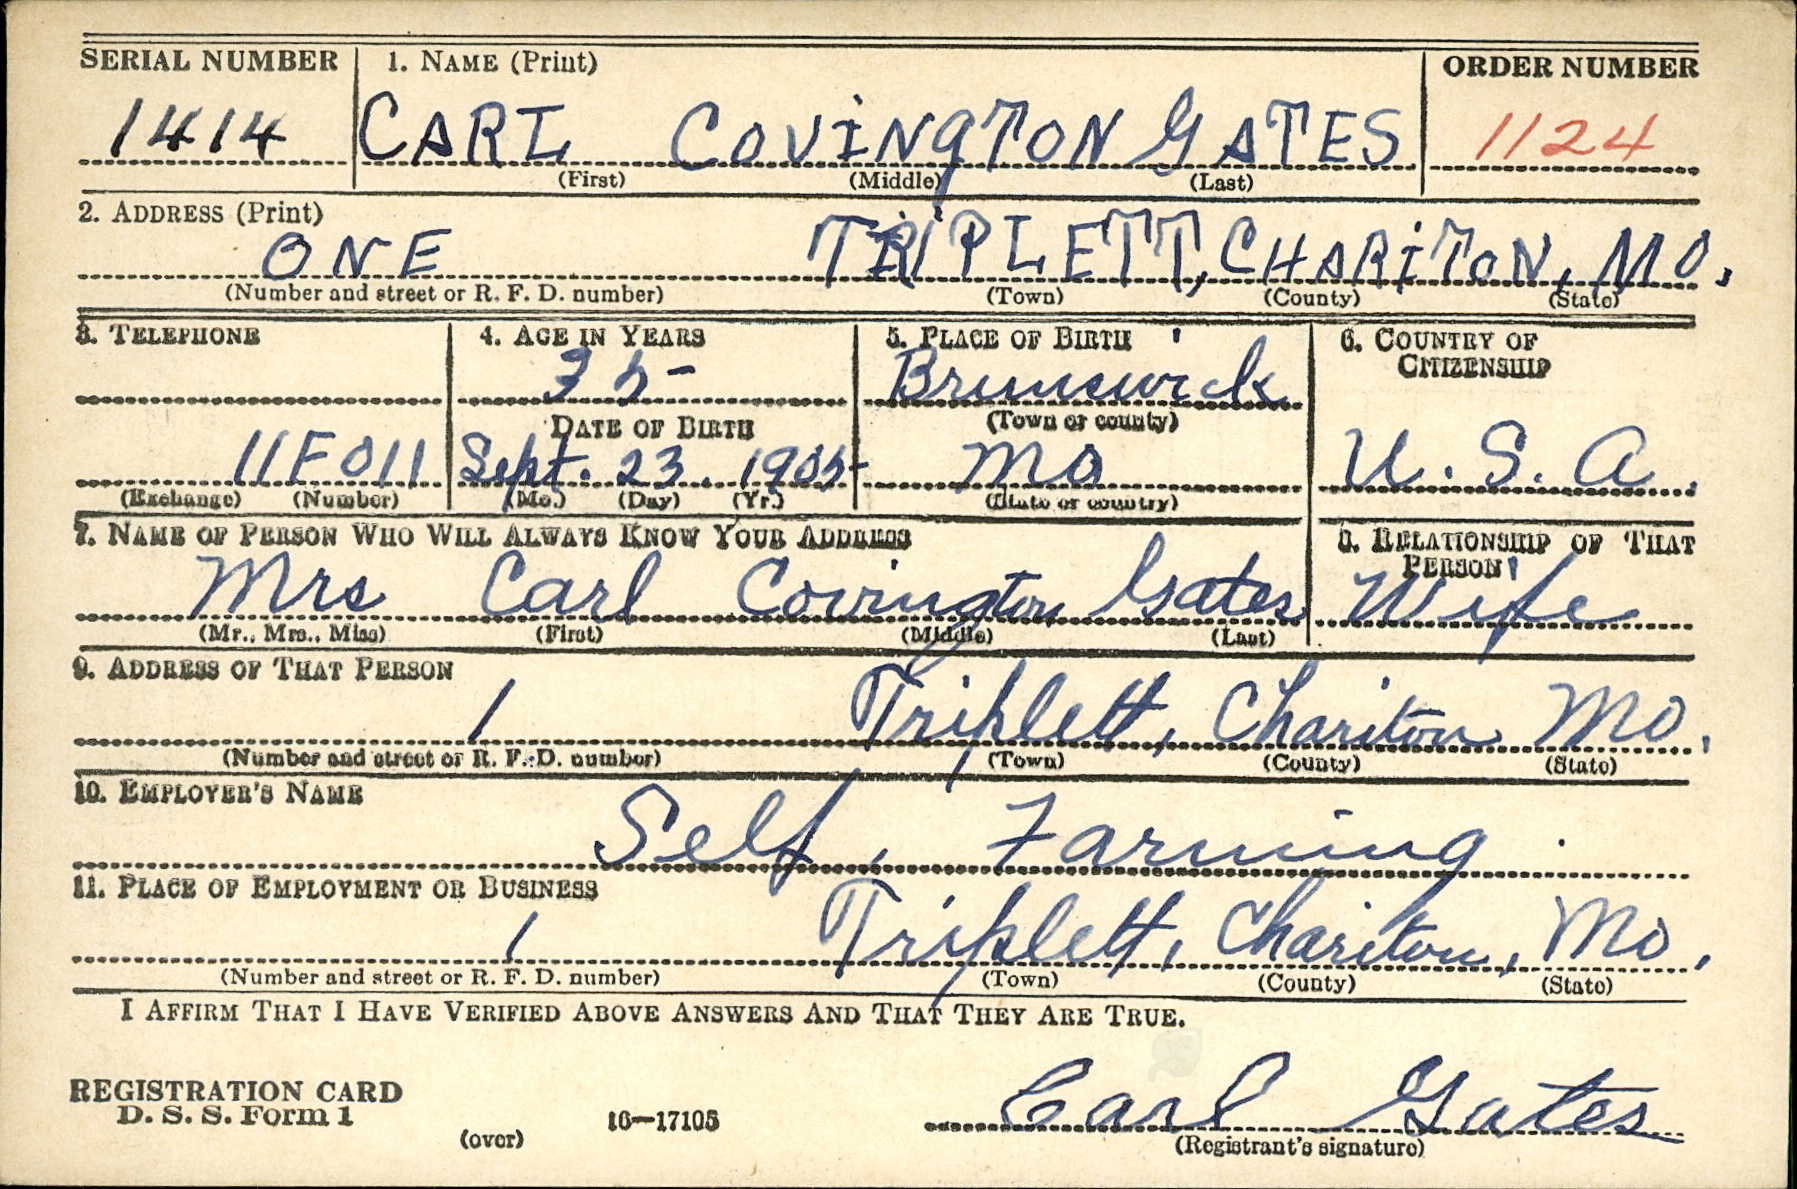 SERIAL NUMBER 1. NAME (Print) ORDER NUMBER
1414 CARL COVINGTON GATES 1124
(First) (Middle) (Last)
2. ADDRESS (Print)
ONE TRIPLETT, CHARITON, MO.
(Number and street or R. F. D. number) (Town) (County) (State)
3. TELEPHONE 4. AGE IN YEARS 5. PLACE OF BIRTH 6. COUNTRY OF CITIZENSHIP
35 Brunswick
DATE OF BIRTH (Town or county)
11F011 Sept. 23, 1905 Mo U.S.A.
(Exchange) (Number) (Mo.) (Day) (Yr.) (State or country)
7. NAME OF PERSON WHO WILL ALWAYS KNOW YOUR ADDRESS 8. RELATIONSHIP OF THAT PERSON
Mrs Carl Covington Gates Wife
(Mr., Mrs., Miss) (First) (Middle) (Last)
9. ADDRESS OF THAT PERSON
1 Triplett, Chariton Mo.
(Number and street or R. F. D. number) (Town) (County) (State)
10. EMPLOYER'S NAME
Self, Farming
11. PLACE OF EMPLOYMENT OR BUSINESS
1 Triplett, Chariton, Mo.
(Number and street or R. F. D. number) (Town) (County) (State)
I AFFIRM THAT I HAVE VERIFIED ABOVE ANSWERS AND THAT THEY ARE TRUE.
REGISTRATION CARD
D. S. S. Form 1 16—17105 Carl Gates
(over) (Registrant's signature)